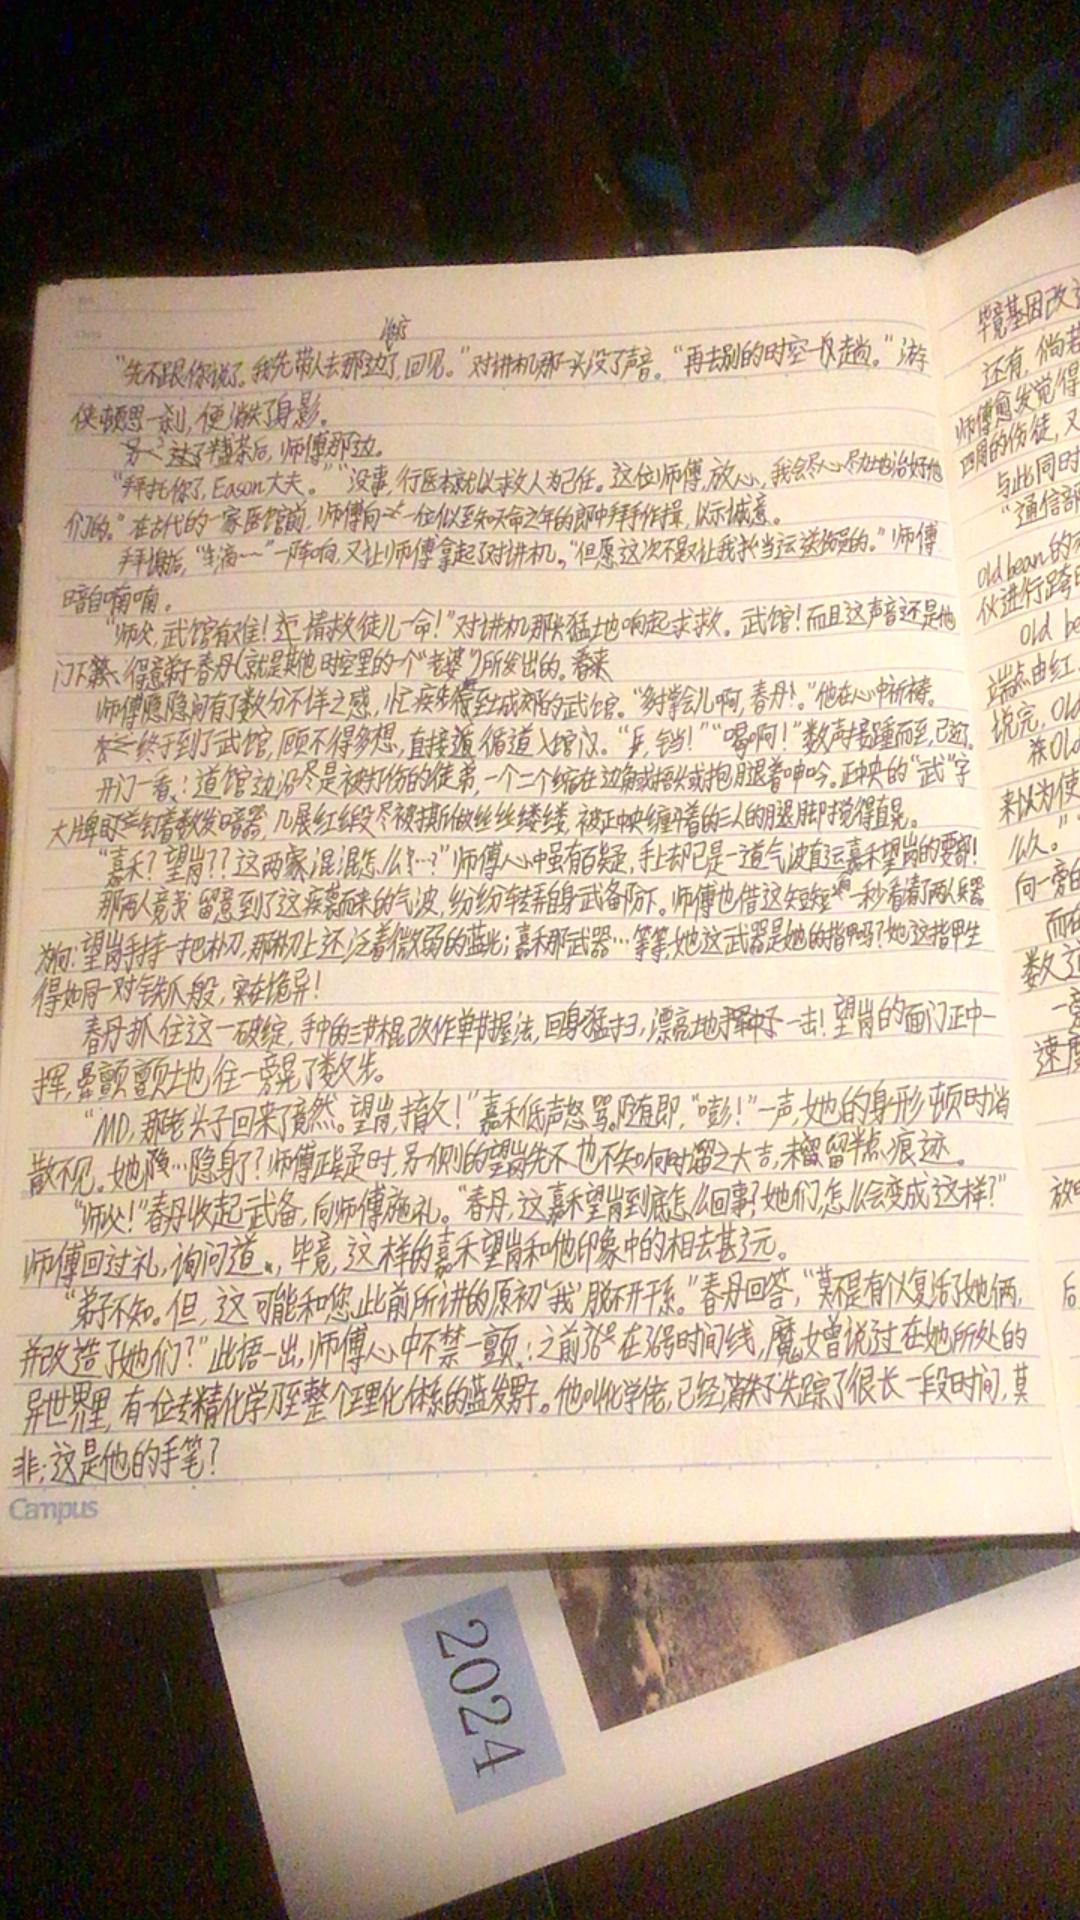 治疗
“先不跟你说了。我先带人去那边了,回见。”对讲机那一头没了声音。“再去别的时空一趟。”游
侠顿思一刹,便消失了身影。
过了半盏茶后,师傅那边。
“拜托你了,Eason大夫。”“没事,行医本就以求人为己任。这位师傅,放心,我会尽心尽力地治好他
们的。”在古代的一家医馆前,师傅向一位似至知天命之年的郎中拜手作揖,以示诚意。
拜谢后,“滋~~”一阵响,又让师傅拿起了对讲机。“但愿这次不是让我当运送伤员的。”师傅
暗自喃喃。
“师父,武馆有难!请救徒儿一命!”对讲机那头猛地响起求救。武馆!而且这声音还是他
门下得意弟子春丹(就是其他时空里的一个“老婆”)所发出的。
师傅隐隐间有了数分不祥之感,忙疾步至城郊的武馆。“多撑会儿啊,春丹!”他在心中祈祷。
终于到了武馆,顾不得多想,直接循道入馆内。“乓,铛!”“喝啊!”数声接踵而至,已近了。
开门一看:道馆边沿尽是被打伤的徒弟,一个二个缩在边角或捂头或抱腿着呻吟。正中央的“武”字
大牌匾钉着数发暗器,几展红绸段尽被撕做丝丝缕缕,被正中央缠斗着的三人的腿脚时搅得直晃。
“嘉禾?望岗??这两家混混怎么…?”师傅心中虽有百疑,手上却已是一道气波直运嘉禾望岗的要部!
那两人竟留意到了这疾袭而来的气波,纷纷转弄自身武备阶下。师傅也借这短短一秒看清了两人兵器
为何:望岗手持一把朴刀,那朴刀上还泛着微弱的蓝光;嘉禾那武器…等等,她这武器是她的指甲吗?她这指甲生
得如同一对铁爪般,实在诡异!
春丹抓住这一破绽,手中的三节棍改作单节握法,回身猛扫,漂亮地一击!望岗的面门正中一
挥,晕颤颤地往一旁晃了数步。
“MD,那老头子回来了竟然。望岗,撤!”嘉禾低声怒骂。随即,“嘭!”一声,她的身形顿时消
散不见。她…隐身了?师傅正疑时,另一侧的望岗先不也不知何时溜之大吉,未留半点痕迹。
“师父!”春丹收起武备,向师傅施礼。“春丹,这嘉禾望岗到底怎么回事?她们怎么会变成这样?”
师傅回过礼,询问道。毕竟,这样的嘉禾望岗和他印象中的相去甚远。
“弟子不知。但,这可能和您此前所讲的原初‘我’脱不开干系。”春丹回答,“莫不是有个人复活了她俩,
并改造了她们?”此语一出,师傅心中不禁一颤:之前在36号时间线,魔女曾说过在她所处的
异世界里,有一位专精化学乃至整个理化体系的蓝发男子。他叫化学佬,已经失踪了很长一段时间,莫
非,这是他的手笔?
Campus
毕竟基因改
还有,倘若
师傅愈发觉得
四周的伤徒,又
与此同时
“通信部
Old bean的
伙进行跨时
old be
端点由红
说完,Old
来以为使
么久。”
向一旁的
数又
速度
放
后
2024